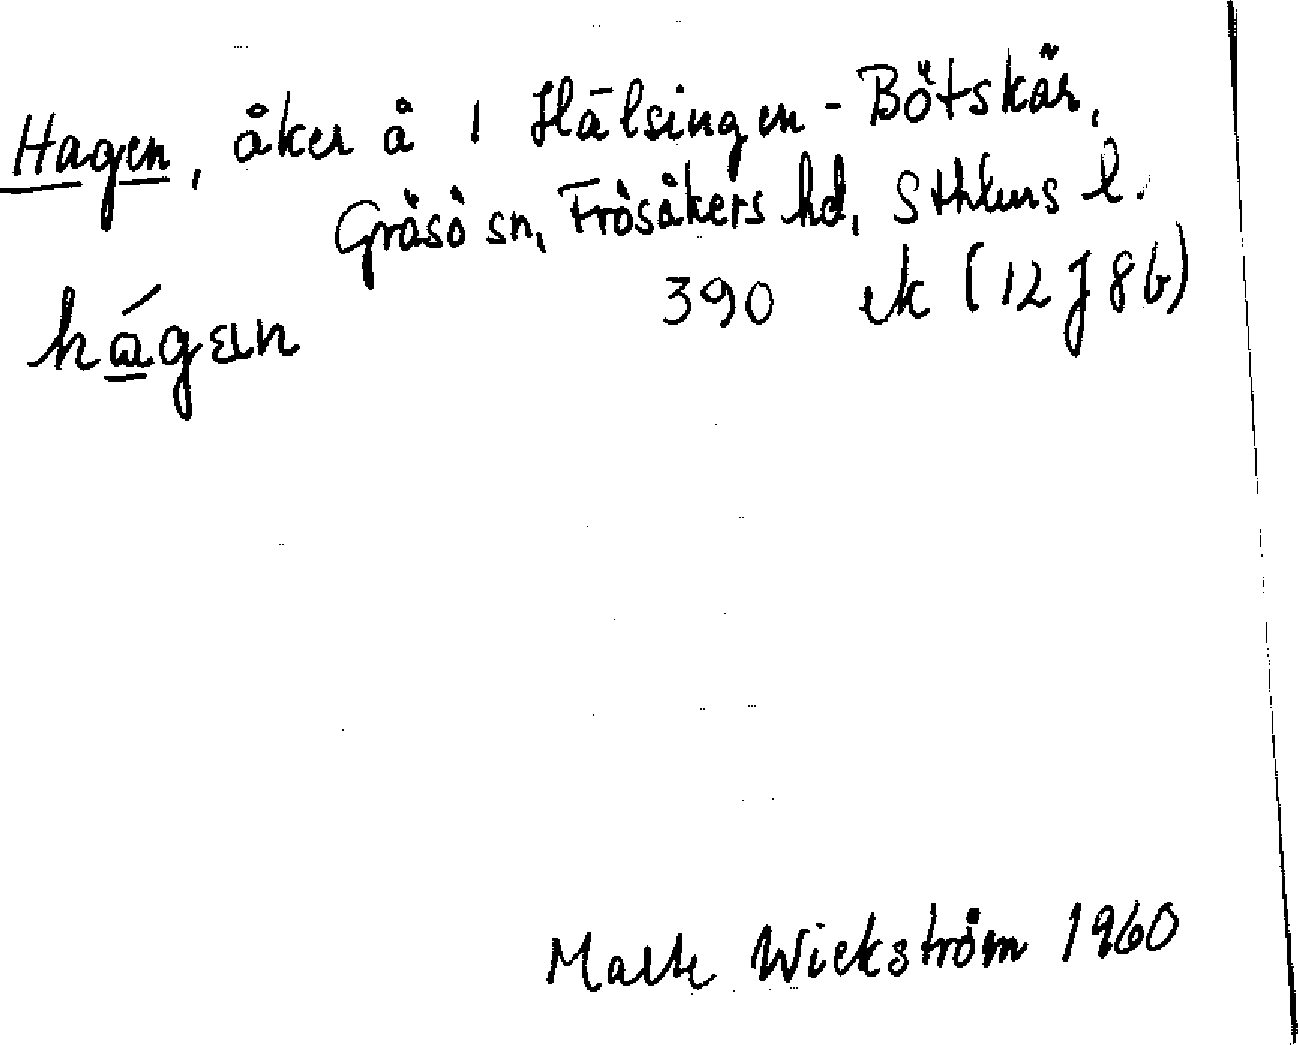 Hagen, åker å 1 Hälsingen - Bötskär,
Gräsö sn, Frösåkers hd, Sthlms l.
hágεn 390 ek (12 J 8 b)
Malte Wickström 1960